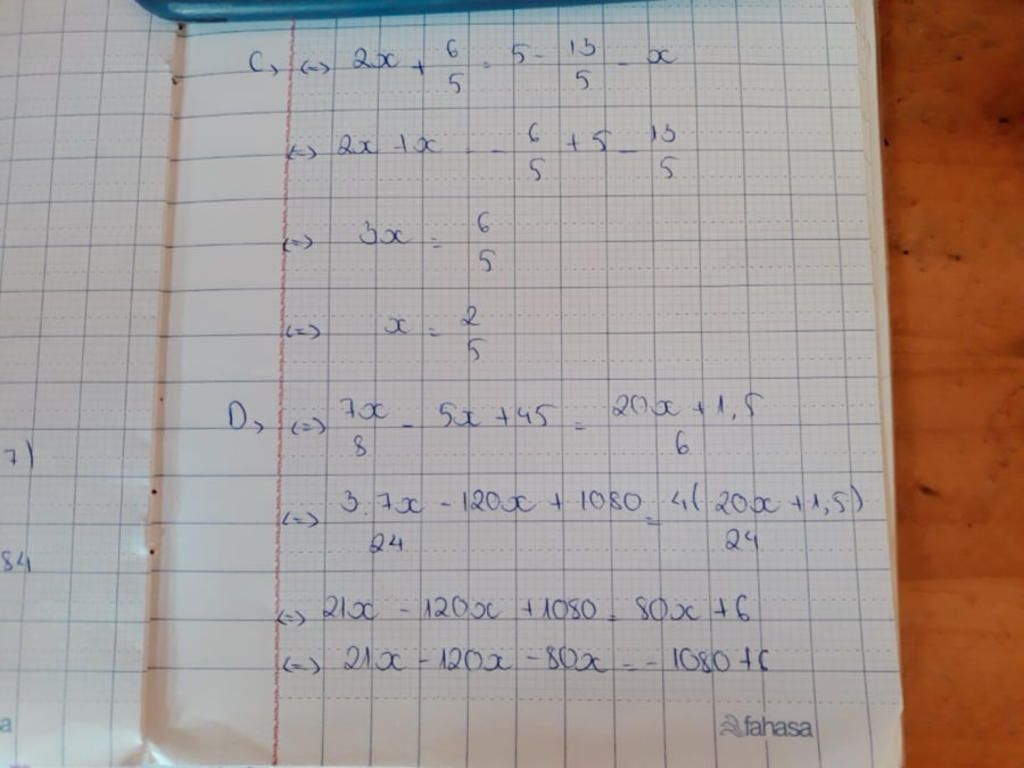 C, <=> 2x + 6/5 = 5 - 13/5 - x
<=> 2x + x = - 6/5 + 5 - 13/5
<=> 3x = 6/5
<=> x = 2/5
D, <=> 7x/8 - 5x + 45 = 20x + 1,5/6
7)
<=> 3.7x - 120x + 1080/24 = 4(20x + 1,5)/24
84
<=> 21x - 120x + 1080 = 80x + 6
<=> 21x - 120x - 80x = - 1080 + 6
a
fahasa